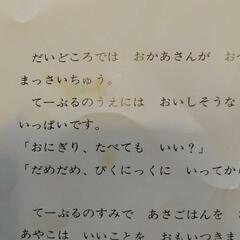 だいどころでは　おかあさんが　お
まっさいちゅう。
てーぶるのうえには　おいしそうな
いっぱいです。
「おにぎり、たべても　いい？」
「だめだめ、ぴくにっくに　いってから
てーぶるのすみで　あさごはんを
あやこは　いいことを　おもいつきま